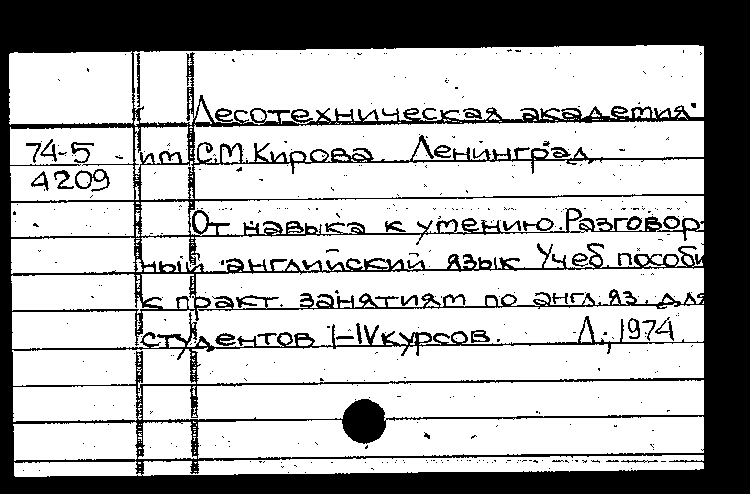 Лесотехническая академия
74-5 им. С.М.Кирова. Ленинград.
4209
От навыка к умению. Разговор-
ный английский язык Учеб. пособи
к практ. занятиям по англ. яз. для
студентов I-IV курсов. Л., 1974